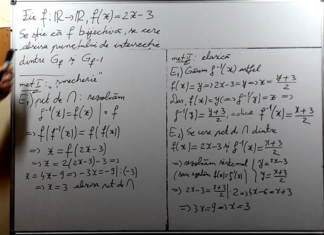 Fie f: ℝ→ℝ, f(x)=2x-3
Se știe că f bijectivă, se cere
abscisa punctului de intersecție
dintre Gf și Gf-1
met I: "șmecherie"
E1) pct de ∩: rezolvăm
f⁻¹(x) = f(x) | ∘f
⇒ f(f⁻¹(x)) = f(f(x))
⇒ x = f(2x-3)
⇒ x = 2(2x-3)-3 ⇒
x = 4x-9 ⇒ -3x = -9 | :(-3)
⇒ x = 3 abscisa pct de ∩
met II: clasică
E1) Găsim f⁻¹(x) astfel
f(x)=y ⇒ 2x-3=y ⇒ x = (y+3)/2
Dar, f(x)=y ⇒ f⁻¹(y) = x ⇒
f⁻¹(y) = (y+3)/2, adică f⁻¹(x) = (x+3)/2
E2) Se cere pct de ∩ dintre
f(x)=2x-3 și f⁻¹(x) = (x+3)/2
⇒ rezolvăm sistemul { y=2x-3
f(x)=f⁻¹(x)) { y = (x+3)/2
⇒ 2x-3 = (x+3)/2 |·2 ⇒ 4x-6 = x+3
⇒ 3x=9 ⇒ x=3